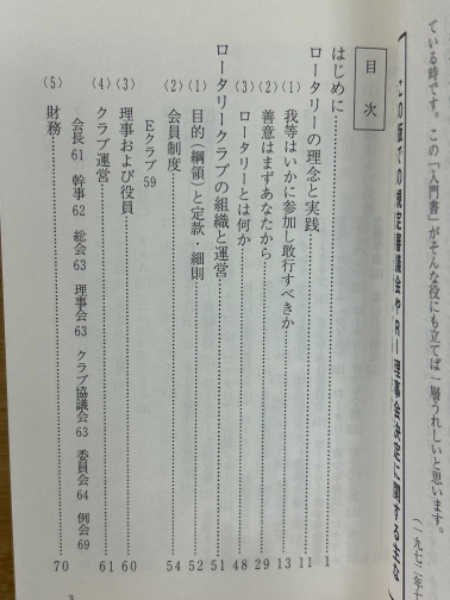 ている時です。この「入門書」がそんな役にも立てば一層うれしいと思います。
(一九七二年十
この版での規定審議会やRI理事会決定に関する主な
目次
はじめに……1
ロータリーの理念と実践……11
(1) 我等はいかに参加し敢行すべきか……13
(2) 善意はまずあなたから……29
(3) ロータリーとは何か……48
ロータリークラブの組織と運営……51
(1) 目的(綱領)と定款・細則……52
(2) 会員制度……54
Eクラブ 59
(3) 理事および役員……60
(4) クラブ運営……61
会長 61 幹事 62 総会 63 理事会 63 クラブ協議会 63 委員会 64 例会 69
(5) 財務……70
3